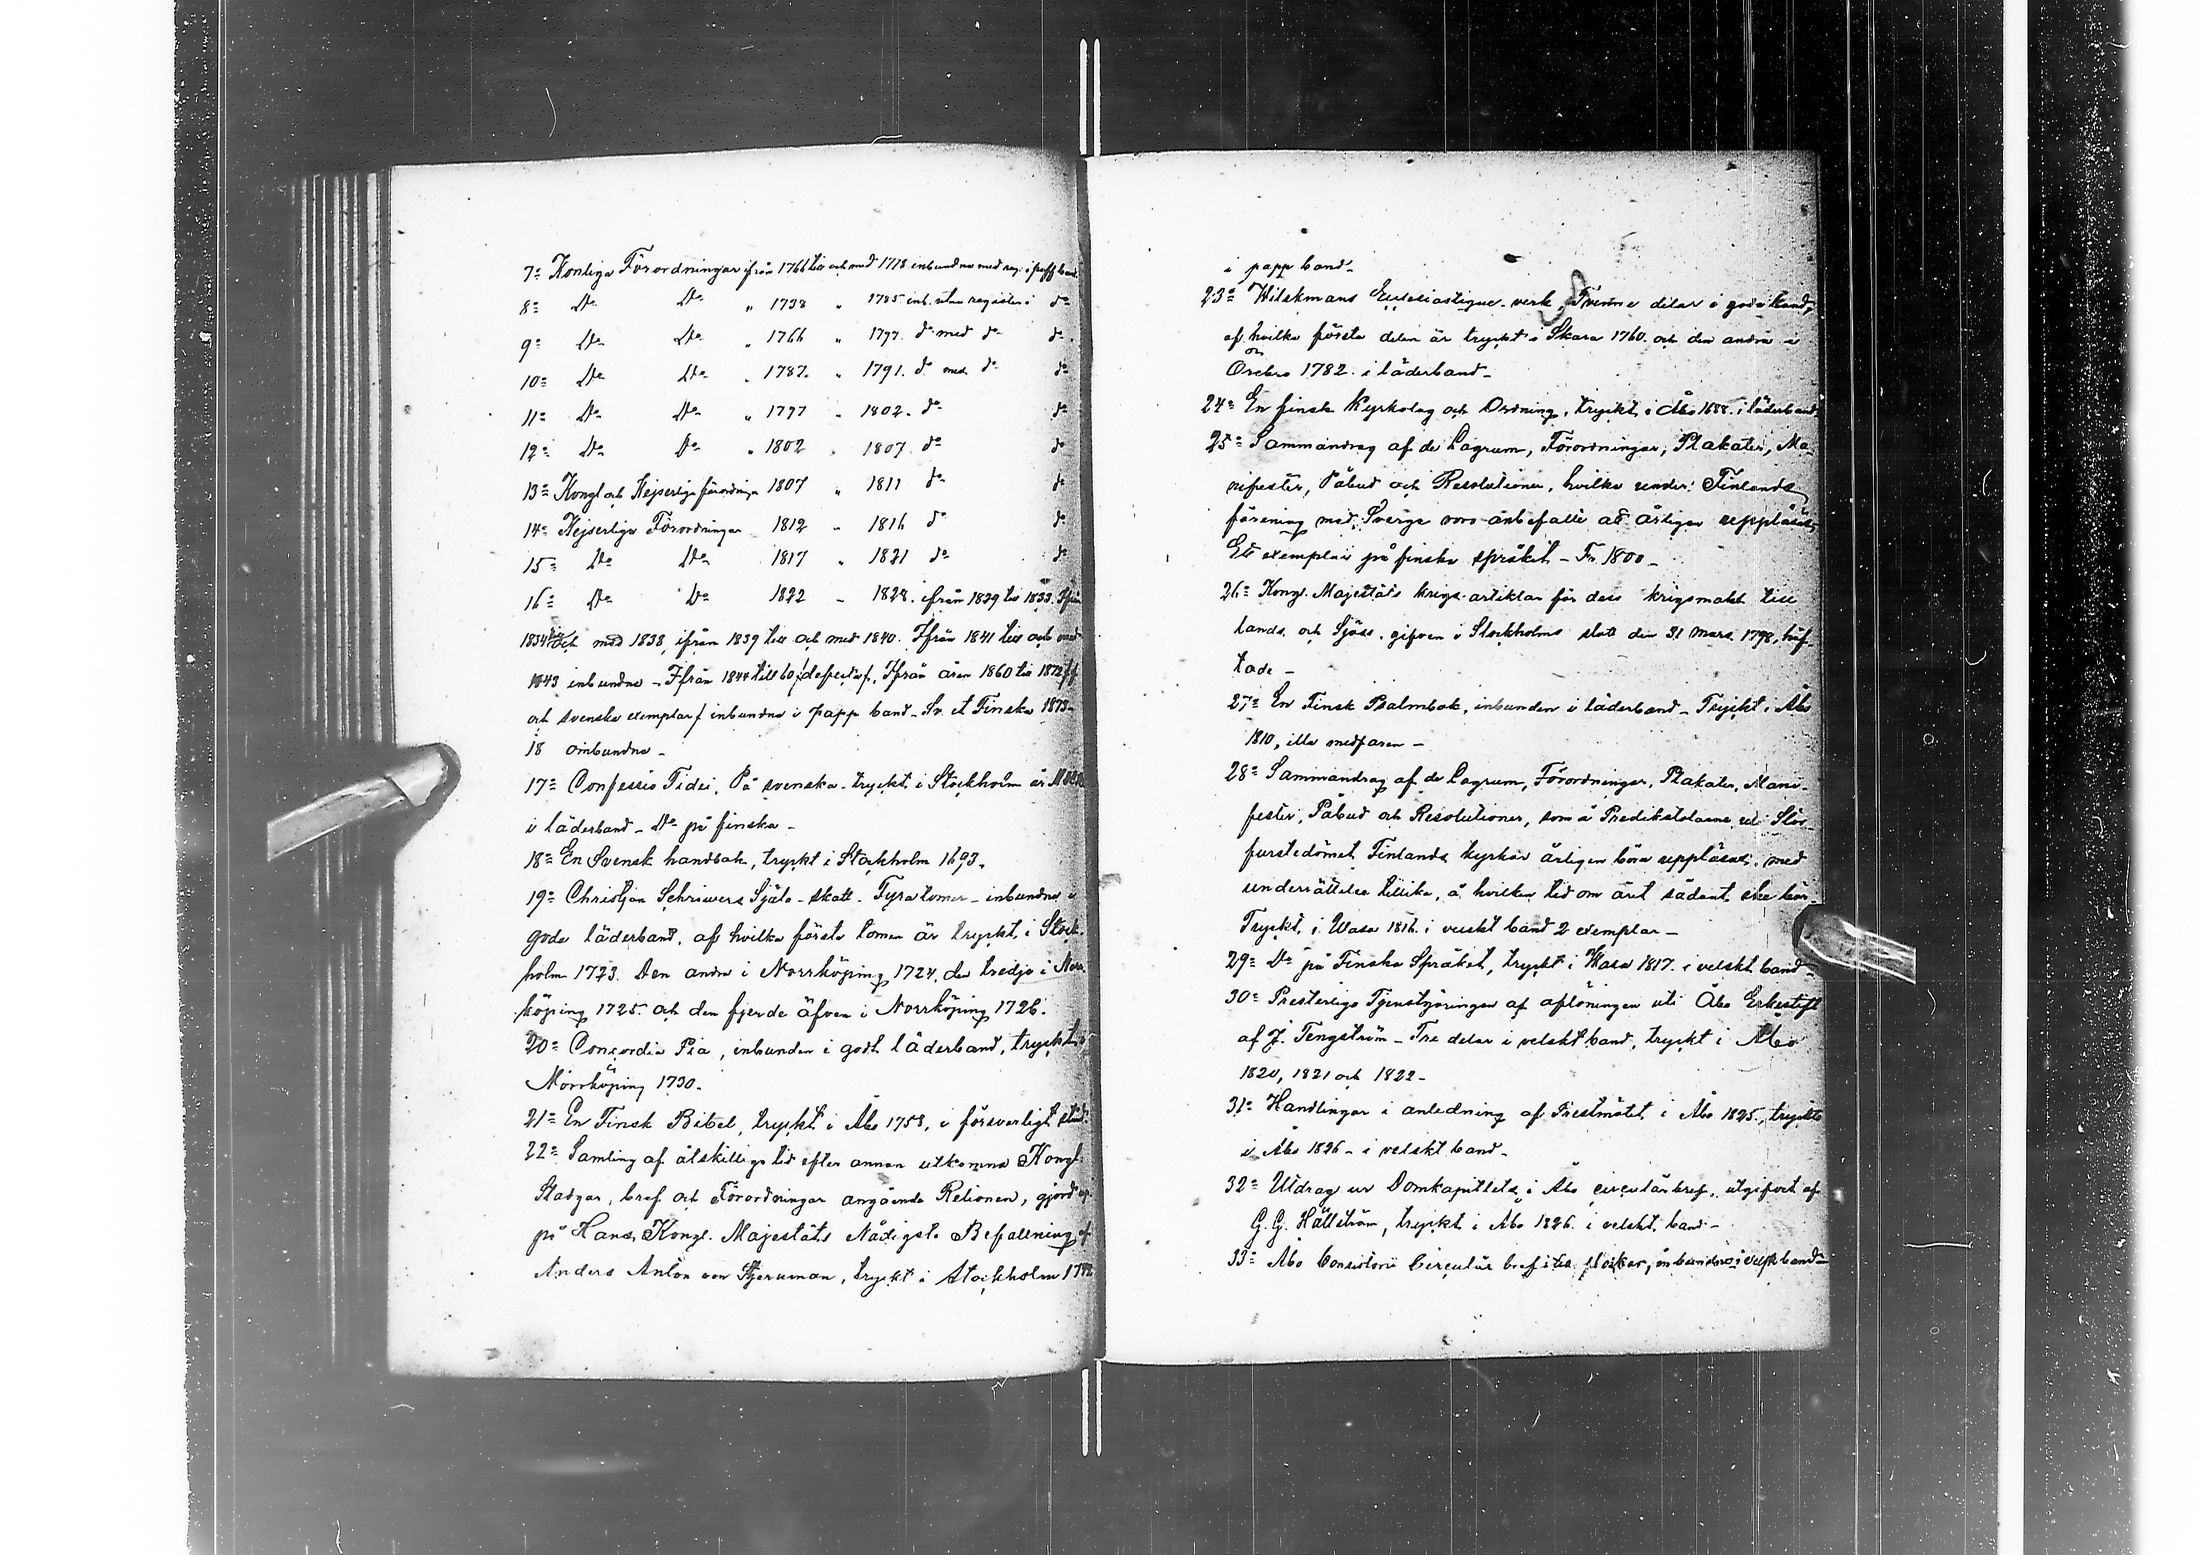 7:= Konliga Förordningar ifrån 1766 till och med 1778 inbundna med reg. i papp band
8:= Do Do " 1738 " 1785 inb. utan register i do
9:= Do Do " 1766 " 1797. do med do do
10:= Do Do " 1787. " 1791. do med do do
11:= Do Do " 1797 " 1802. do do
12:= Do Do " 1802 " 1807. do do
13:= Kongl. och Kejserliga förordningar 1807 " 1811 do do
14:= Kejserliga Förordningar 1812 " 1816 do do
15:= Do Do 1817 " 1821 do do
16:= Do Do 1822 " 1828. ifrån 1829 till 1833. Ifrån
1834 till och med 1838, ifrån 1839 till och med 1840. Ifrån 1841 till och med
1843 inbundna - Ifrån 1844 till 60 /defecta/. Ifrån åren 1860 till 1872 /
och svenska exemplar/ inbundna i papp band - Sv. et Finska 1873-
18 oinbundna -
17:= Confessio Fidei, På svenska - tryckt i Stockholm år
i läderband - Do på finska -
18:= En Svensk handbok, tryckt i Stockholm 1693.
19:= Christjan Schriwers Själa-skatt - Fyra tomer - inbundna i
goda läderband, af hvilka första tomen är tryckt i Stock-
holm 1723. Den andra i Norrköping 1724, den tredje i Norr-
köping 1725 och den fjerde äfven i Norrköping 1726.
20:= Concordia Pia, inbunden i godt läderband, tryckt i
Norrköping 1730.
21:= En Finsk Bibel, tryckt i Åbo 1758, i försvarligt stånd.
22:= Samling af åtskilliga tid efter annan utkomna Kongl.
Stadgar, bref och Förordningar angående Relionen, gjord
på Hans Kongl. Majestäts Nådigste Befallning af
Anders Anton von Stjernman, tryckt i Stockholm
i papp band -
23:= Wilskmans Ecclesiastique-verk Tvenne delar i goda band,
af hvilka första delen är tryckt i Skara 1760. och den andra i
Örebro 1782. i läderband -
24:= En finsk Kyrkolag och Ordning, tryckt i Åbo 1688. i läderband
25:= Sammandrag af de Lagrum, Förordningar, Plakater, Ma-
nifester, Påbud och Resolutioner, hvilka under Finlands
förening med Sverge voro anbefalte att årligen uppläsas,
Ett exemplar på finska språket - Fr. 1800 -
26:= Kongl. Majestäts krigs-artiklar för dess krigsmakt till
lands och Sjöss, gifven i Stockholms slott den 31 Mars 1798, häf-
tade -
27:= En Finsk Psalmbok, inbunden i läderband - Tryckt i Åbo
1810, illa medfaren -
28:= Sammandrag af de Lagrum, Förordningar, Plakater, Mani-
fester, Påbud och Resolutioner, som å Predikstolarne uti Stor-
furstedömet Finlands kyrkor årligen böra uppläsas, med
underrättelse tillika, å hvilken tid om året sådant ske bör -
Tryckt i Wasa 1816. i velskt band 2 exemplar -
29:= Do på Finska Språket, tryckt i Wasa 1817. i velskt band -
30:= Presterliga Tjenstgöringen af aflöningen uti Åbo Erkestift
af J. Tengström - Tre delar i velskt band, tryckt i Åbo
1820, 1821 och 1822 -
31:= Handlingar i anledning af Prestmötet i Åbo 1825, tryckte
i Åbo 1826 - i velskt band -
32:= Utdrag ur Domkapitlets i Åbo circulärbref, utgifvit af
G. G. Hällström, tryckt i Åbo 1826. i velskt band -
33:= Åbo Consistorii Circulär bref i tio stycker, inbundna i velsk band -